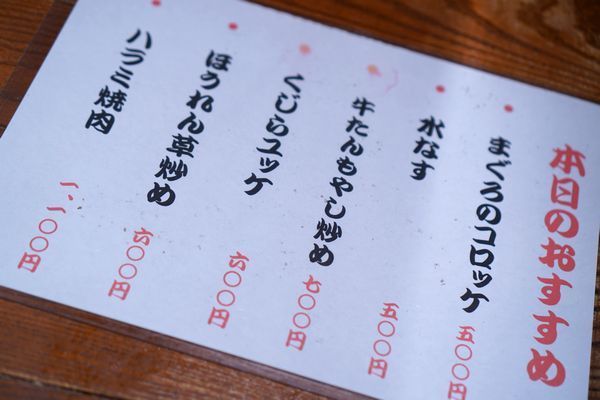 本日のおすすめ
まぐろのコロッケ 五〇〇円
水なす 五〇〇円
牛たんもやし炒め 七〇〇円
くじらユッケ 六〇〇円
ほうれん草炒め 六〇〇円
ハラミ焼肉 一、一〇〇円